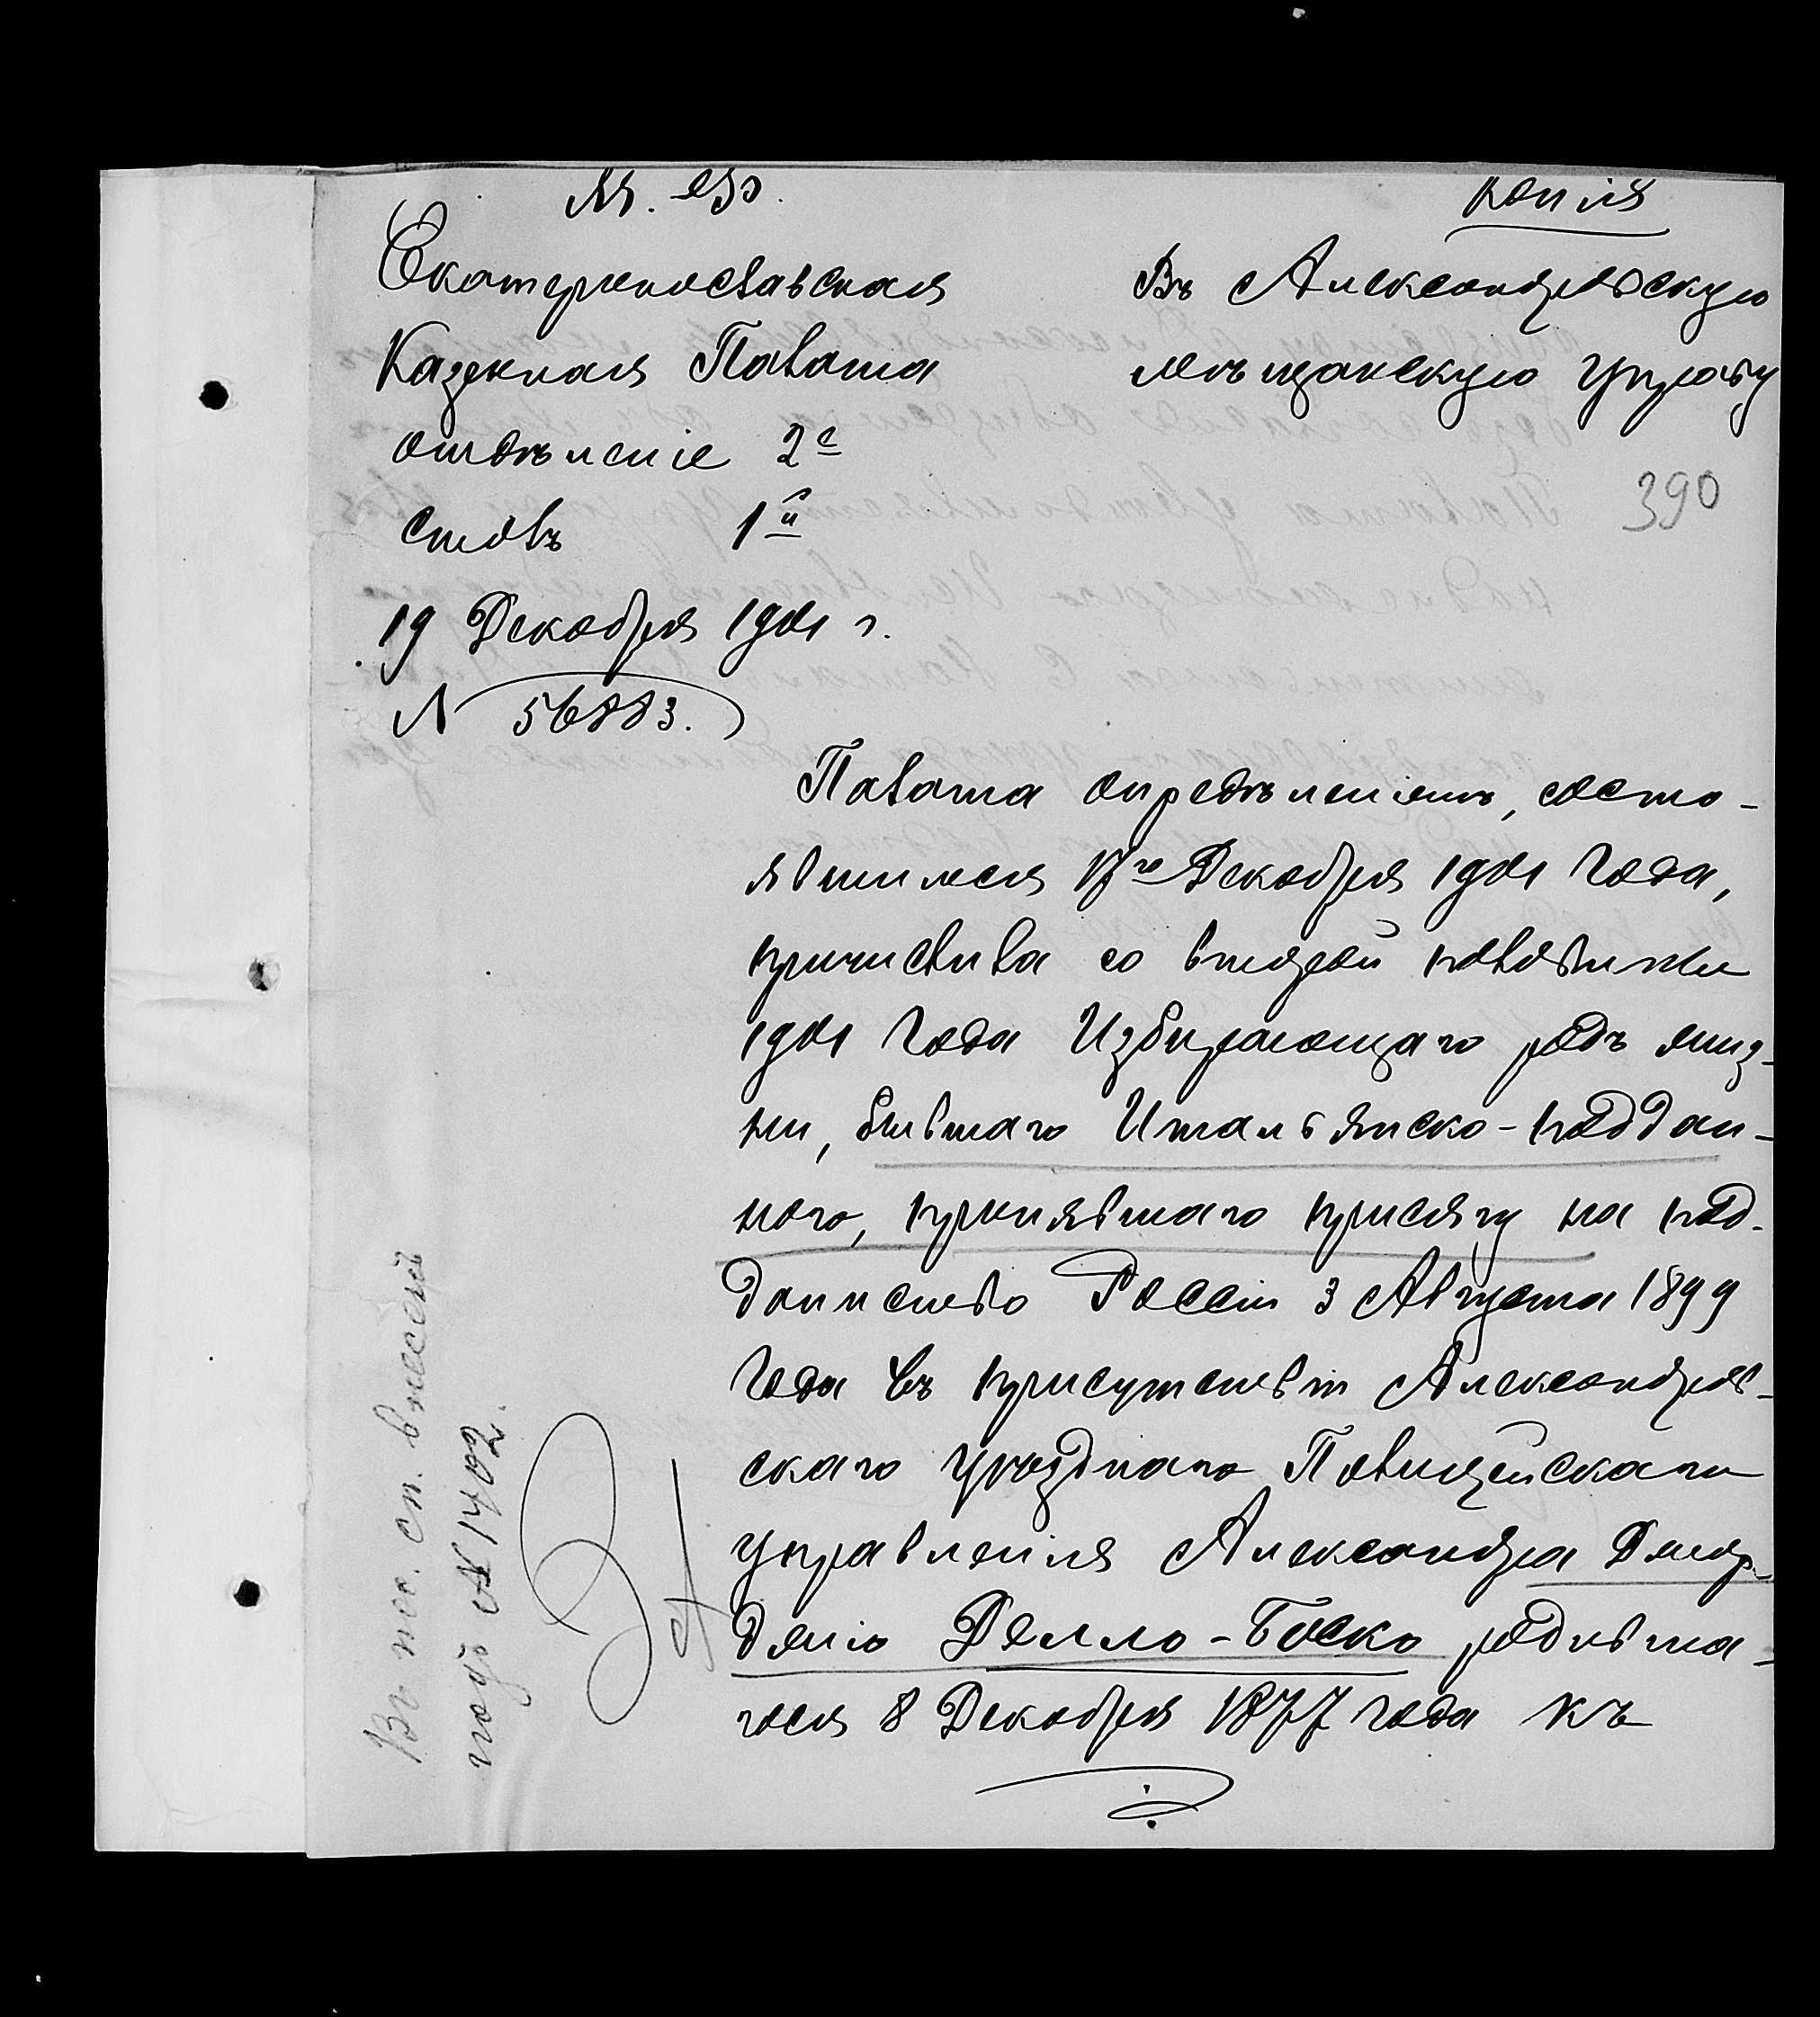 М. Ф.
Копія
Екатеринославская
Казенная Палата
отдѣленіе 2е
столъ 1й
19 Декабря 1901 г.
N 56883.
Въ Александровскую
мѣщанскую управу
390
Палата опредѣленіемъ, состо-
явшимся 17го Декабря 1901 года,
причислила со второй половины
1901 года Избирающаго родъ жиз-
ни, бывшаго Итальянско-поддан-
ного, принявшаго присягу на под-
данство Россіи 3 Августа 1899
года въ присутствіи Александров-
скаго уѣзднаго Полицейскаго
управленія Александра Джор-
джіо Делло-Боско родивша-
гося 8 Декабря 1877 года къ
Въ пос. сп. внесенъ
подъ N 1402.